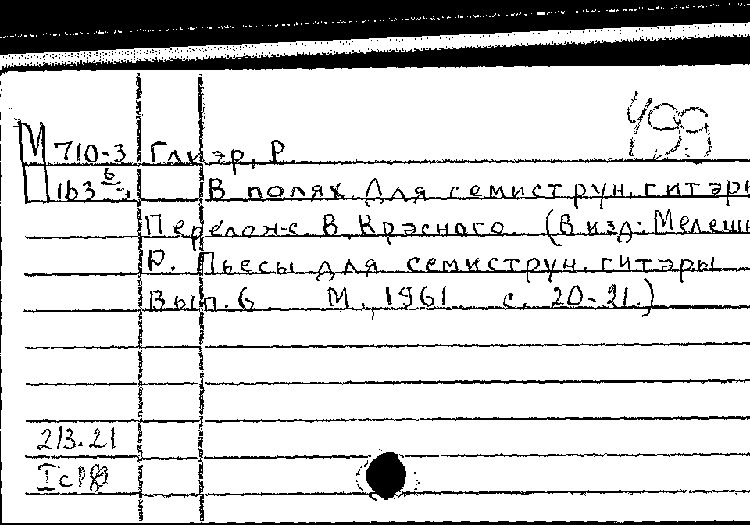 499
М 710-3 Глиэр, Р.
163 6
В полях. Для семиструн. гитары
Перелож. В. Красного. (В изд: Мелеш
Р. Пьесы для семиструн. гитары
Вып. 6 М., 1961 с. 20-21.)
213.21